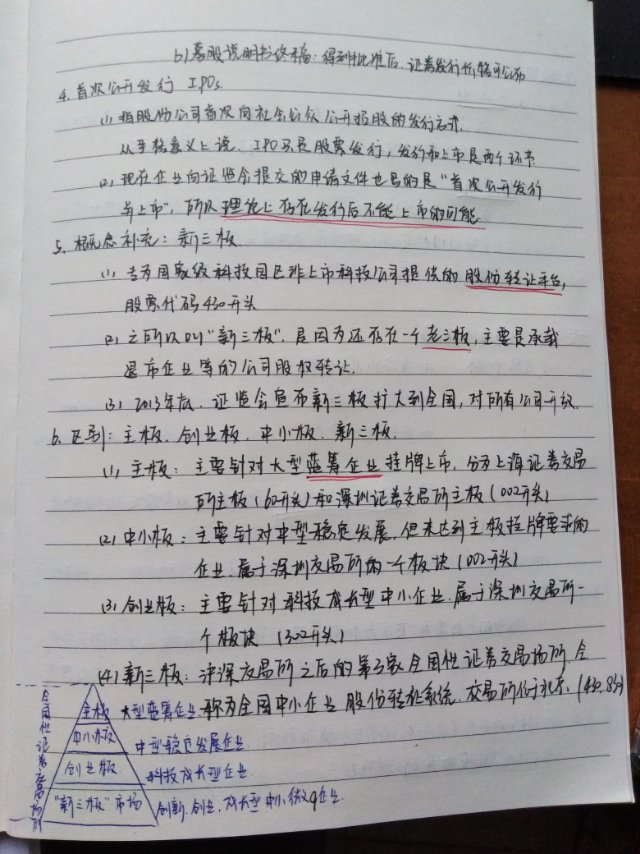 b) 募股说明书终稿：得到批准后，证券发行价格可公布
4. 首次公开发行 IPOs
(1) 指股份公司首次向社会公众公开招股的发行方式.
从严格意义上说，IPO只是股票发行，发行和上市是两个环节
(2) 现在企业向证监会提交的申请文件也写的是“首次公开发行
与上市”，所以理论上存在发行后不能上市的可能.
5. 概念补充：新三板
(1) 专为国家级科技园区非上市科技公司提供的股份转让平台,
股票代码430开头
(2) 之所以叫“新三板”，是因为还存在一个老三板，主要是承载
退市企业等的公司股权转让.
(3) 2013年底，证监会宣布新三板扩大到全国，对所有公司开放.
6. 区别：主板、创业板、中小板、新三板.
(1) 主板：主要针对大型蓝筹企业挂牌上市，分为上海证券交易
所主板(60开头)和深圳证券交易所主板(002开头)
(2) 中小板：主要针对中型稳定发展，但未达到主板挂牌要求的
企业，属于深圳交易所的一个板块(002开头)
(3) 创业板：主要针对科技成长型中小企业，属于深圳交易所一
个板块(300开头)
(4) 新三板：沪深交易所之后的第三家全国性证券交易场所，全
称为全国中小企业股份转让系统，交易所位于北京，(430、83)
全国性证券交易场所
主板 大型蓝筹企业
中小板 中型稳定发展企业
创业板 科技成长型企业
“新三板”市场 创新、创业、成长型中小微企业